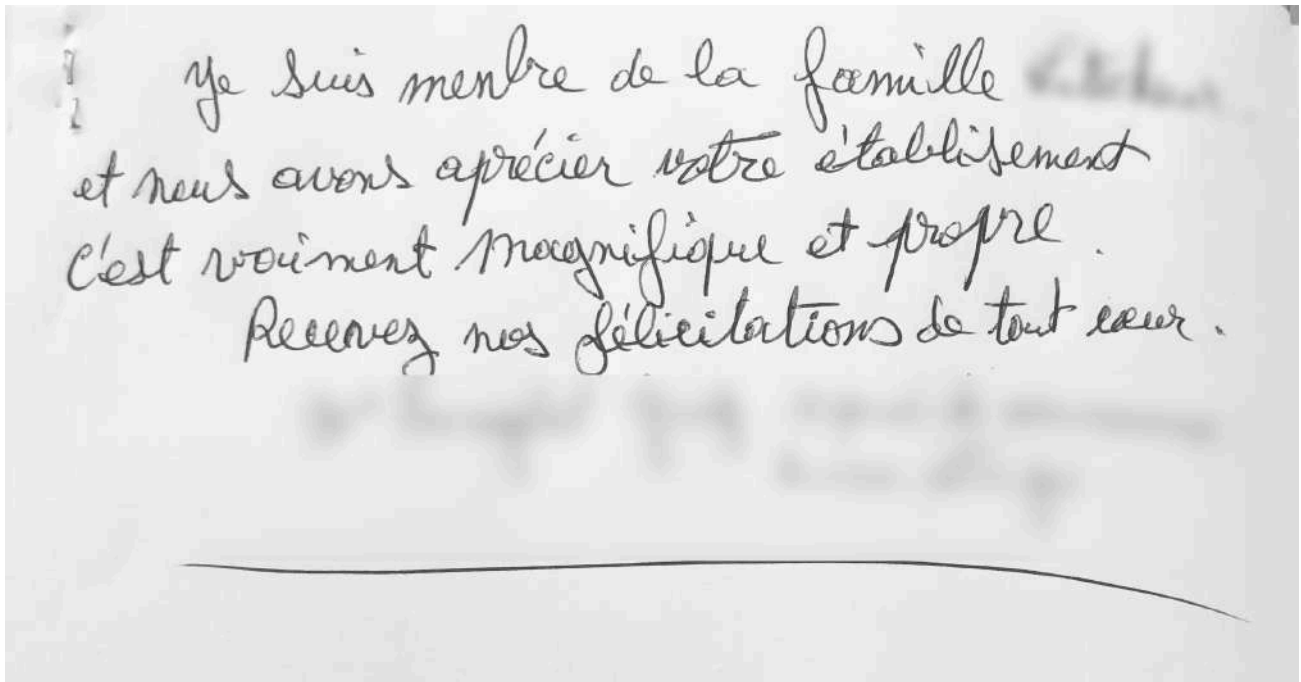 Je suis menbre de la famille
et nous avons aprécier votre établisement
c'est vraiment magnifique et propre.
Recevez nos félicitations de tout cœur.